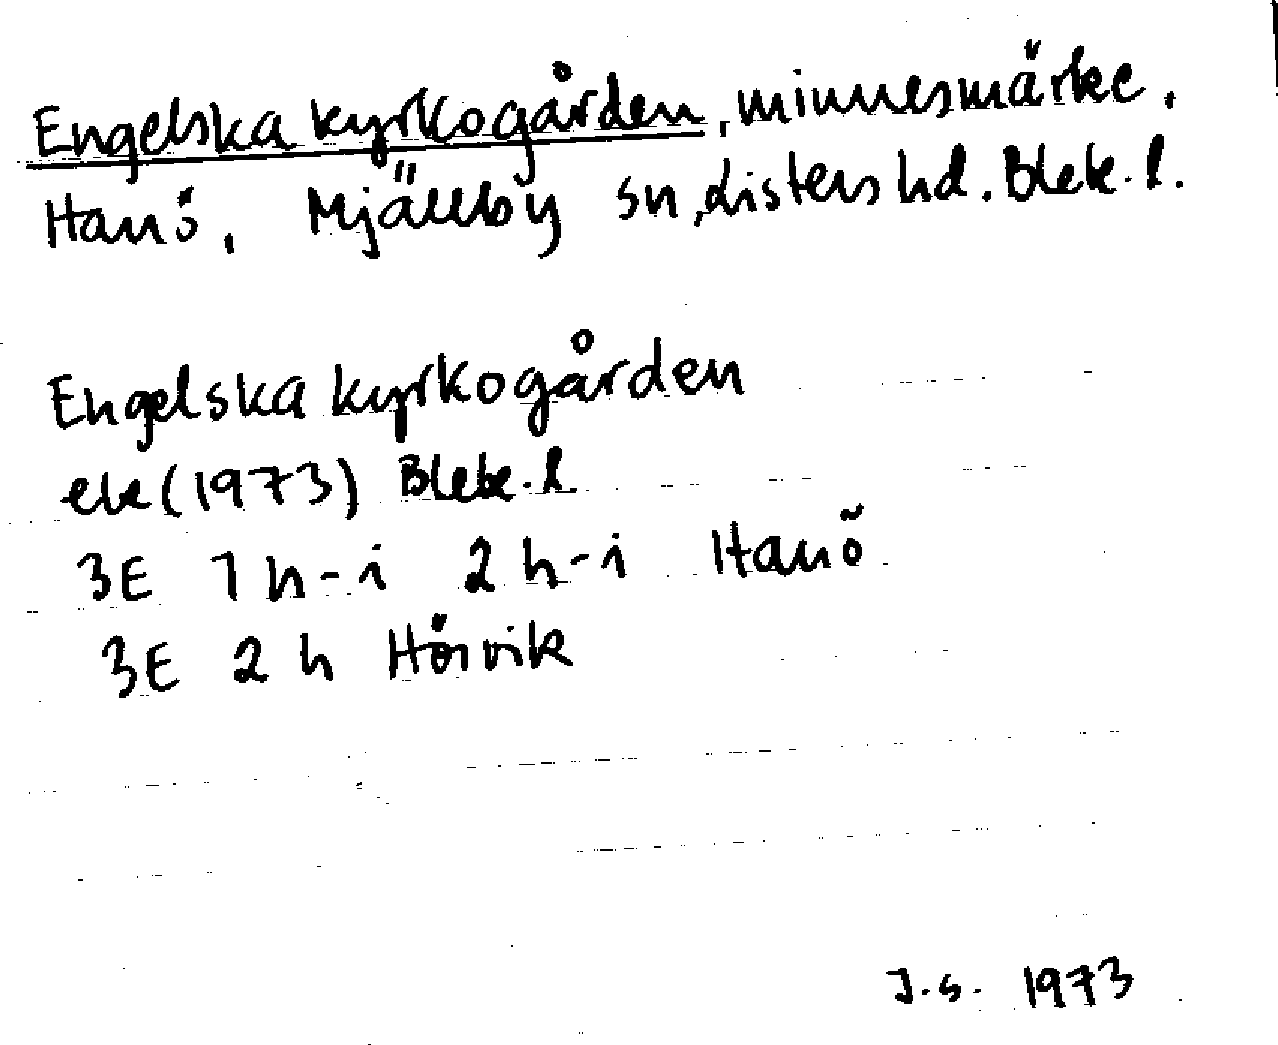 Engelska kyrkogården, minnesmärke,
Hanö, Mjällby sn, Listers hd. Blek. l.
Engelska kyrkogården
ek (1973) Blek. l
3E 1h-i 2h-i Hanö
3E 2h Hörvik
J.S. 1973